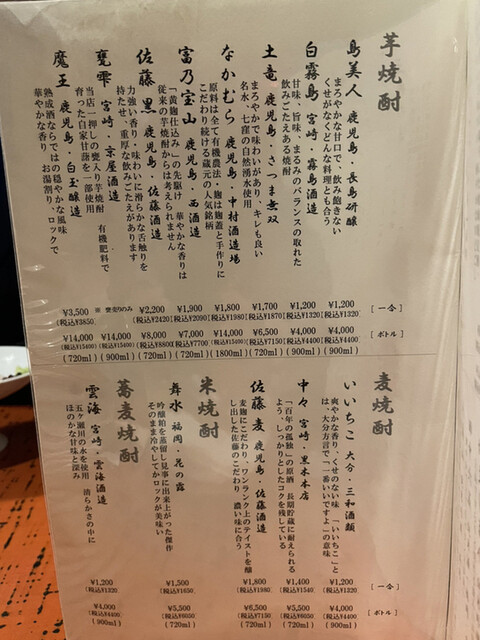 芋焼酎
島美人 鹿児島・長島研醸
まろやかな甘口で、飲み飽きない
くせがなくどんな料理とも合う
白霧島 宮崎・霧島酒造
甘味、旨味、まるみのバランスの取れた
飲みごたえある焼酎
土竜 鹿児島・さつま無双
まろやかで味わいがあり、キレも良い
名水、七窪の自然湧水使用
なかむら 鹿児島・中村酒造場
原料は全て有機農法・麹は麹蓋と手作りに
こだわり続ける蔵元の人気銘柄
富乃宝山 鹿児島・西酒造
「黄麹仕込み」の先駆け 華やかな香りは
従来の芋焼酎からは考えられません
佐藤 黒 鹿児島・佐藤酒造
力強い香り・味わいに滑らかな舌触りを
持たせ、重厚な飲みごたえがあります
甕雫 宮崎・京屋酒造
当店一押しの甕入り芋焼酎 有機肥料で
育った自家甘藷を一部使用
魔王 鹿児島・白玉醸造
熟成酒ならではの穏やかな風味
華やかな香り、お湯割り、ロックで
[一合]
¥1,200
(税込¥1320)
¥1,200
(税込¥1320)
¥1,700
(税込¥1870)
¥1,800
(税込¥1980)
¥1,900
(税込¥2090)
¥2,200
(税込¥2420)
※ 甕売りのみ
¥3,500
(税込¥3850)
[ボトル]
¥4,000
(税込¥4400)
(900ml)
¥4,000
(税込¥4400)
(900ml)
¥6,500
(税込¥7150)
(720ml)
¥14,000
(税込¥15400)
(1800ml)
¥7,000
(税込¥7700)
(720ml)
¥8,000
(税込¥8800)
(720ml)
¥14,000
(税込¥15400)
(900ml)
¥14,000
(税込¥15400)
(720ml)
麦焼酎
いいちこ 大分・三和酒類
爽やかな香り、くせのない味 「いいちこ」と
は、大分方言で「一番いいですよ」の意味
中々 宮崎・黒木本店
「百年の孤独」の原酒 長期貯蔵に耐えられる
よう、しっかりとしたコクを残している
佐藤 麦 鹿児島・佐藤酒造
麦麹にこだわり、ワンランク上のテイストを醸
し出した佐藤のこだわり 濃い味に合う
米焼酎
舞水 福岡・花の露
吟醸粕を蒸留し見事に出来上がった傑作
そのまま冷やしてかロックが美味い
蕎麦焼酎
雲海 宮崎・雲海酒造
五ヶ瀬川の水を使用 清らかさの中に
ほのかな甘味と深み
[一合]
¥1,200
(税込¥1320)
¥1,400
(税込¥1540)
¥1,800
(税込¥1980)
¥1,500
(税込¥1650)
¥1,200
(税込¥1320)
[ボトル]
¥4,000
(税込¥4400)
(900ml)
¥5,500
(税込¥6050)
(720ml)
¥6,500
(税込¥7150)
(720ml)
¥5,500
(税込¥6050)
(720ml)
¥4,000
(税込¥4400)
(900ml)